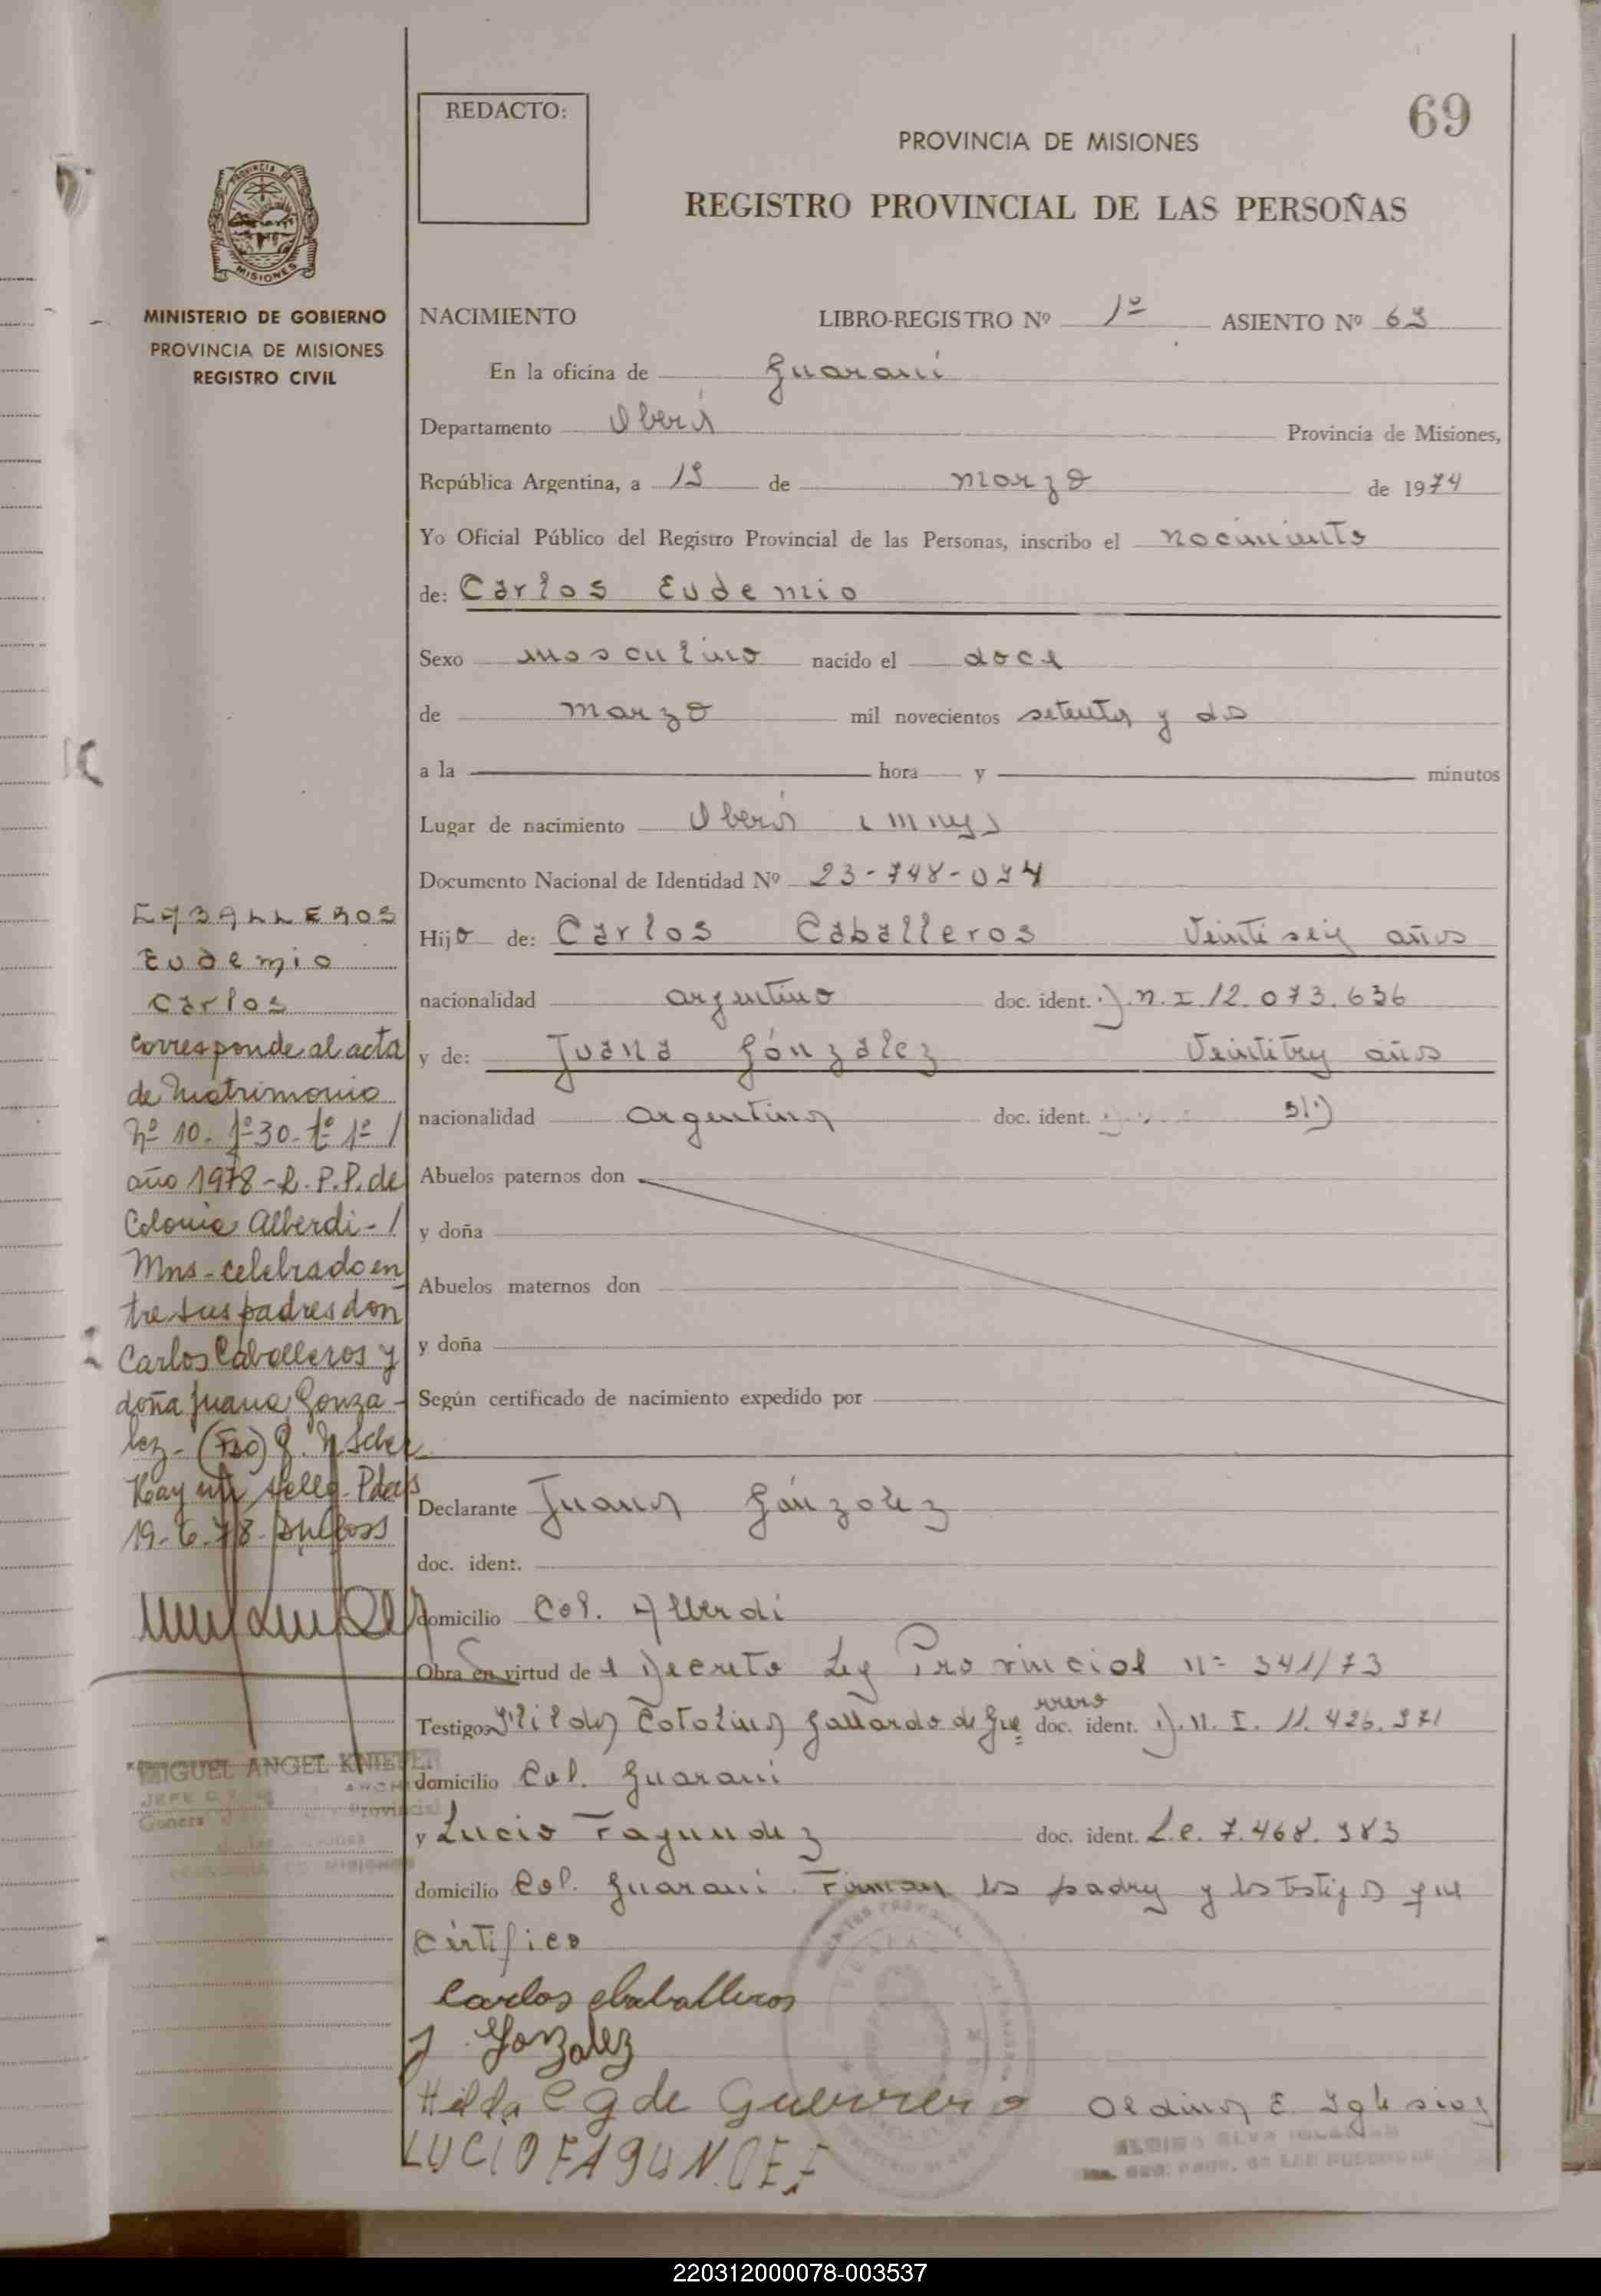 REDACTO:
69
PROVINCIA DE MISIONES
REGISTRO PROVINCIAL DE LAS PERSOÑAS
PROVINCIA DE
MISIONES
MINISTERIO DE GOBIERNO
PROVINCIA DE MISIONES
REGISTRO CIVIL
NACIMIENTO LIBRO-REGISTRO Nº 1º ASIENTO Nº 69
En la oficina de Guaraní
Departamento Oberá Provincia de Misiones,
República Argentina, a 19 de marzo de 1974
Yo Oficial Público del Registro Provincial de las Personas, inscribo el nacimiento
de: Carlos Eudemio
Sexo masculino nacido el doce
de marzo mil novecientos setenta y dos
a la hora y minutos
Lugar de nacimiento Oberá
Documento Nacional de Identidad Nº 23-748-094
Hijo de: Carlos Caballeros Veintiseis años
nacionalidad argentino doc. ident. D.N.I. 12.073.636
y de: Juana Gónzalez Veintitres años
nacionalidad argentina doc. ident.
Abuelos paternos don
y doña
Abuelos maternos don
y doña
Según certificado de nacimiento expedido por
Declarante Juana Gónzalez
doc. ident.
domicilio Col. Alberdi
Obra en virtud de l Decreto Ley Provincial nº 341/73
Testigos Hilda Catalina Gallardo de Gue rrero doc. ident. D.N.I. 11.426.971
domicilio Col. Guaraní
y Lucio Fagundez doc. ident. L.e. 7.468.983
domicilio Col. Guaraní. Firman los padres y los testigos que
certifico
Carlos Caballeros
J. Gonzalez
Hilda C g de Guerrero
LUCIO FAGUNDEZ
CABALLEROS
Eudemio
Carlos
corresponde al acta
de Matrimonio
Nº 10. Fº 30. Tº 1º /
año 1978 - R. P. P. de
Colonia Alberdi - /
Mns - celebrado en
tre sus padres don
Carlos Caballeros y
doña Juana Gonza -
lez - (Fdo)
Hay un sello. Pdas
19-6-78
MIGUEL ANGEL
220312000078-003537